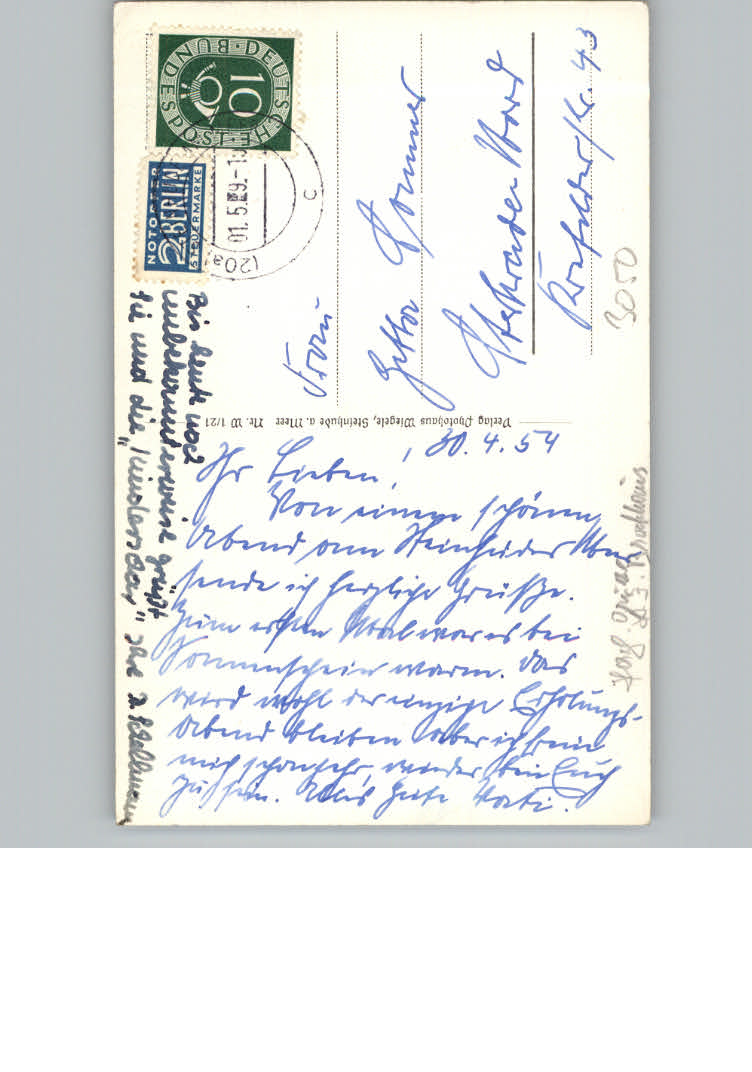 30.4.54
Ihr Lieben!
Von einem schönen
Abend am Steinhuder Meer
sende ich herzliche Grüße.
Zum ersten Mal war es bei
Sonnenschein warm. Das
wird wohl der einzige Erholungs-
Abend bleiben aber ich freue
mich schon sehr, wieder bei Euch
zu sein. Alles Gute Vati.
Bis heute noch
unbekannterweise grüßt
Sie und die "Kinderschar" Ihre
Frau
Sommer
Sterkrade-Nord
43
3050
DEUTSCHE BUNDESPOST
10
NOTOPFER
2 BERLIN
STEUERMARKE
(20a)
01.5.
c
Verlag Photohaus Wiegele, Steinhude a. Meer Nr. W 1/21